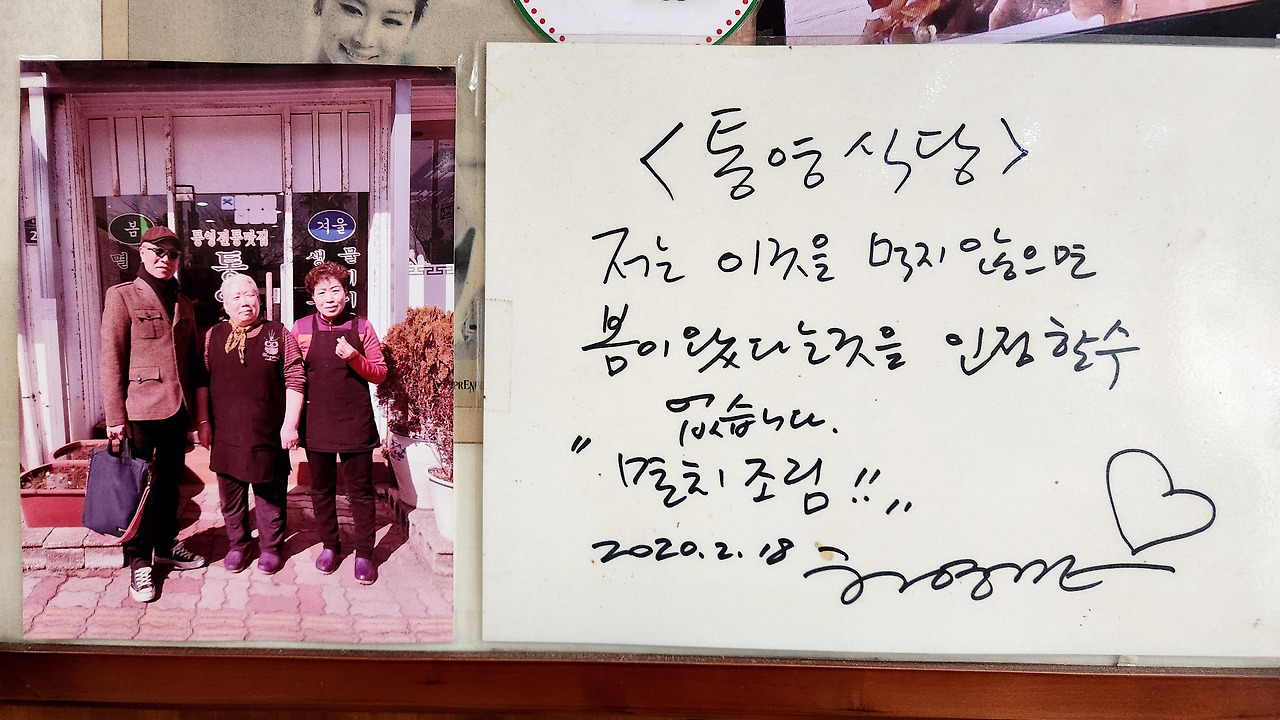 봄
겨울
통영전통맛집
멸
통
생
물
<통영식당>
저는 이것을 먹지 않으면
봄이 왔다는것을 인정할수
없습니다.
"멸치조림!!"
2020. 2. 18